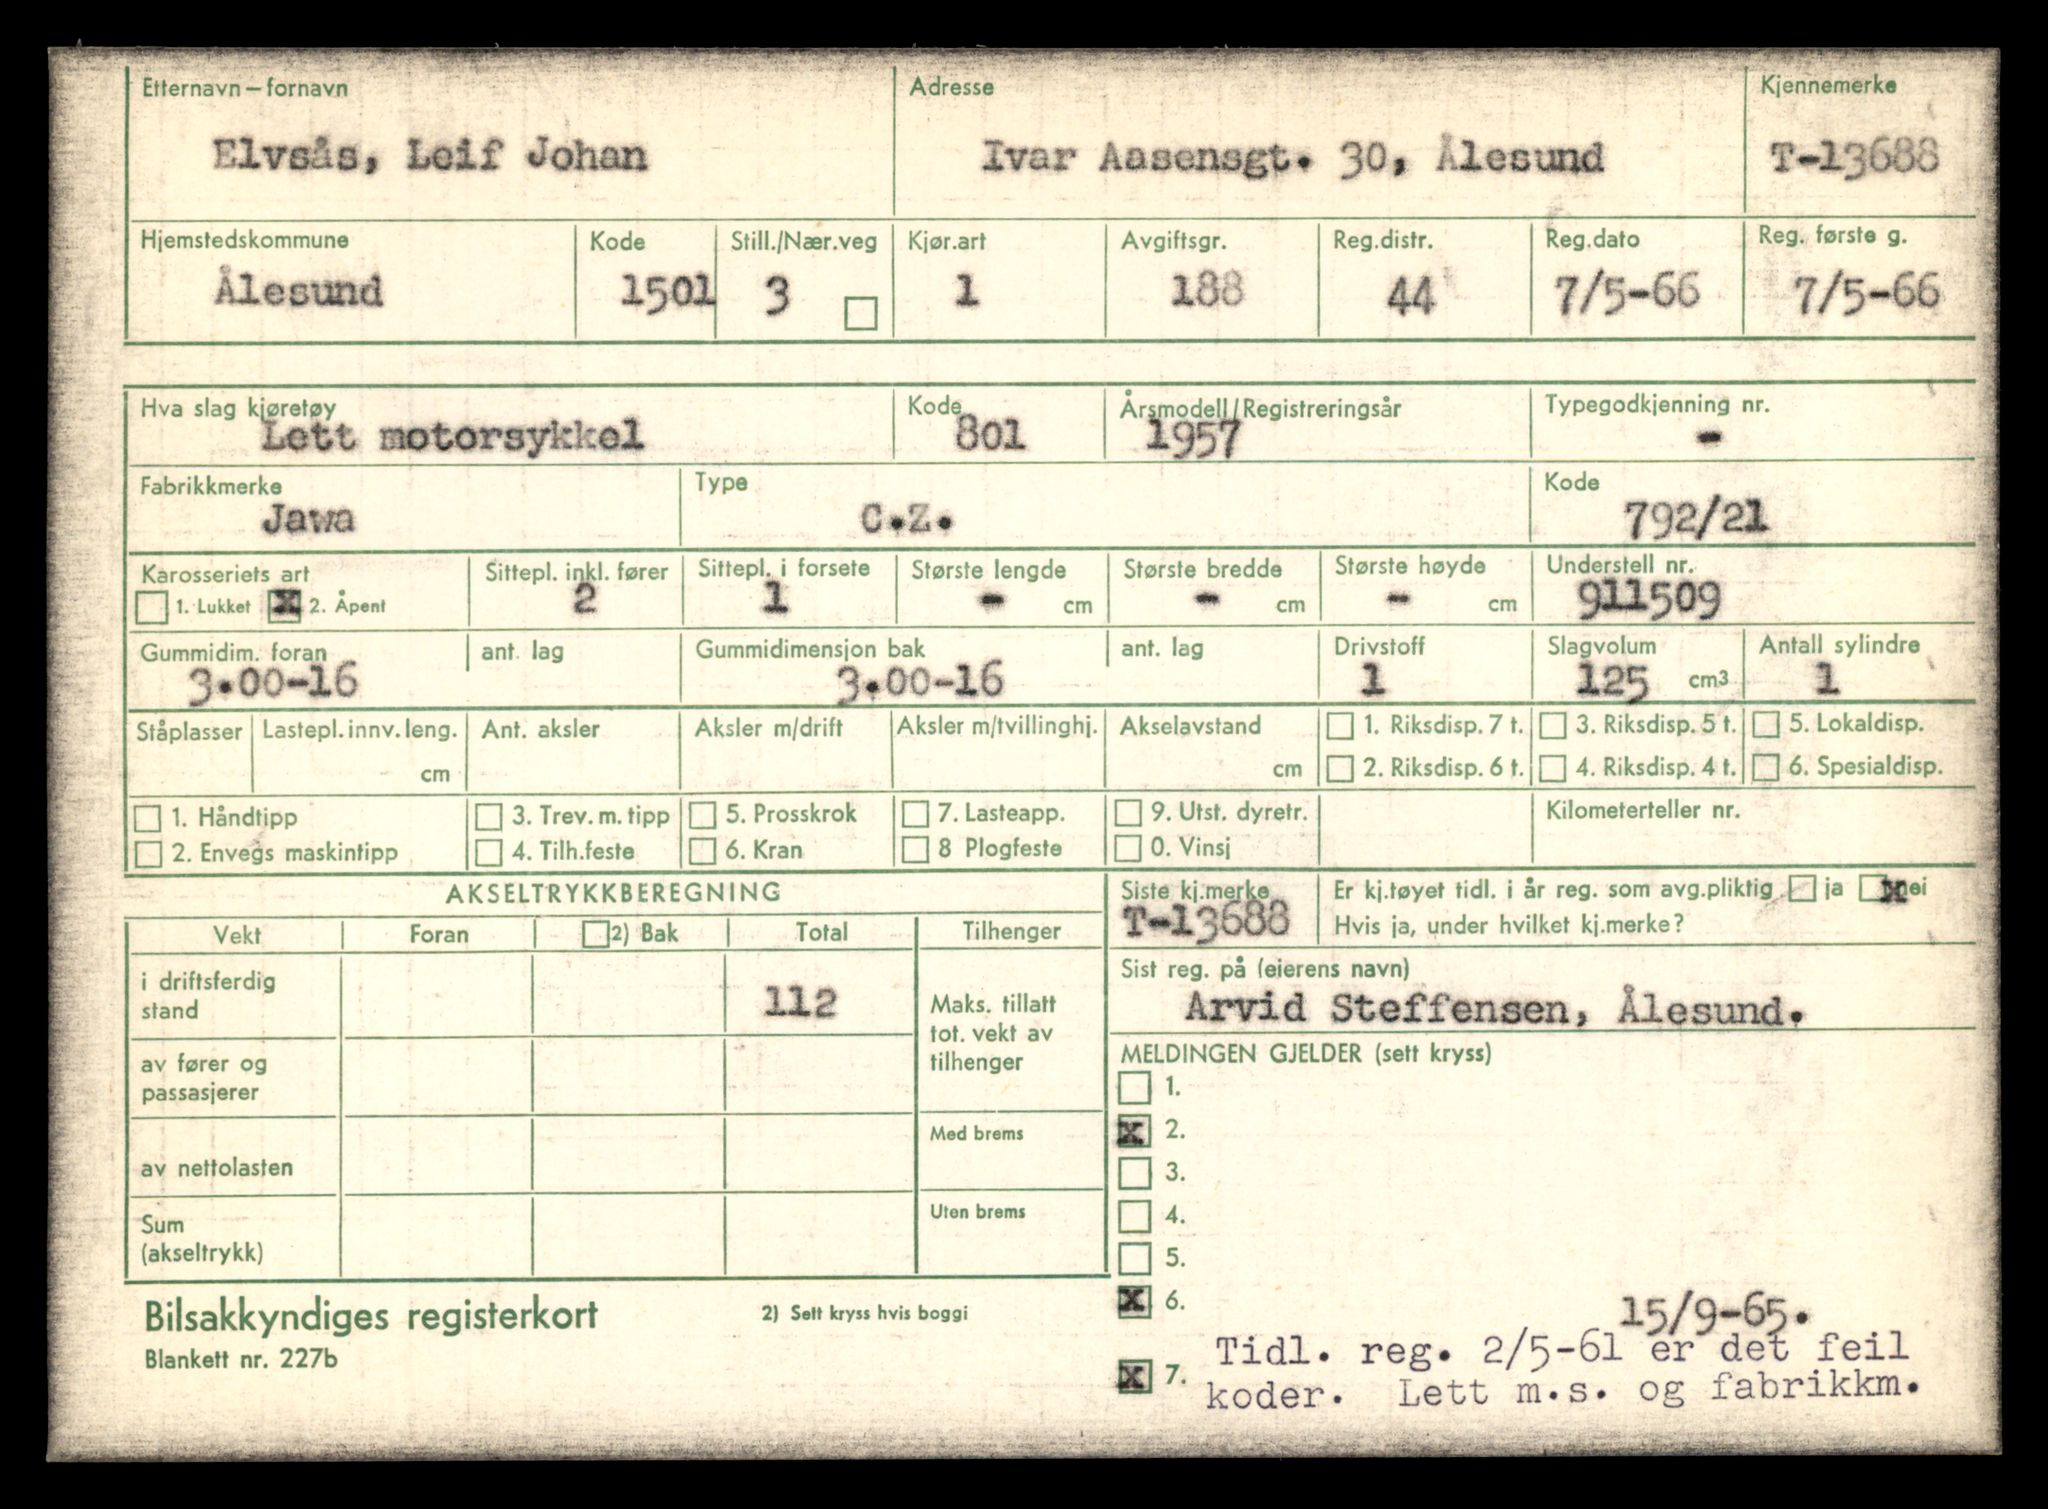 Etternavn – fornavn Adresse Kjennemerke
Elvsås, Leif Johan Ivar Aasensgt. 30, Ålesund T-13688
Hjemstedskommune Kode Still./Nær.veg Kjør.art Avgiftsgr. Reg.distr. Reg.dato Reg. første g.
Ålesund 1501 3 1 188 44 7/5-66 7/5-66
Hva slag kjøretøy Kode Årsmodell/Registreringsår Typegodkjenning nr.
Lett motorsykkel 801 1957 -
Fabrikkmerke Type Kode
Jawa C.Z. 792/21
Karosseriets art Sittepl. inkl. fører Sittepl. i forsete Største lengde Største bredde Største høyde Understell nr.
1. Lukket x 2. Åpent 2 1 - cm - cm - cm 911509
Gummidim. foran ant. lag Gummidimensjon bak ant. lag Drivstoff Slagvolum Antall sylindre
3.00-16 3.00-16 1 125 cm3 1
Ståplasser Lastepl. innv. leng. Ant. aksler Aksler m/drift Aksler m/tvillinghj. Akselavstand 1. Riksdisp. 7 t. 3. Riksdisp. 5 t. 5. Lokaldisp.
cm cm 2. Riksdisp. 6 t. 4. Riksdisp. 4 t. 6. Spesialdisp.
1. Håndtipp 3. Trev. m. tipp 5. Prosskrok 7. Lasteapp. 9. Utst. dyretr. Kilometerteller nr.
2. Envegs maskintipp 4. Tilh.feste 6. Kran 8 Plogfeste 0. Vinsj
AKSELTRYKKBEREGNING Siste kj.merke Er kj.tøyet tidl. i år reg. som avg.pliktig ja x nei
T-13688 Hvis ja, under hvilket kj.merke?
Vekt Foran 2) Bak Total Tilhenger
Sist reg. på (eierens navn)
Arvid Steffensen, Ålesund.
i driftsferdig
stand 112
Maks. tillatt
tot. vekt av
tilhenger
av fører og
passasjerer
Med brems
av nettolasten
Uten brems
Sum
(akseltrykk)
MELDINGEN GJELDER (sett kryss)
1.
x 2.
3.
4.
5.
x 6. 15/9-65.
x 7. Tidl. reg. 2/5-61 er det feil
koder. Lett m.s. og fabrikkm.
Bilsakkyndiges registerkort 2) Sett kryss hvis boggi
Blankett nr. 227b